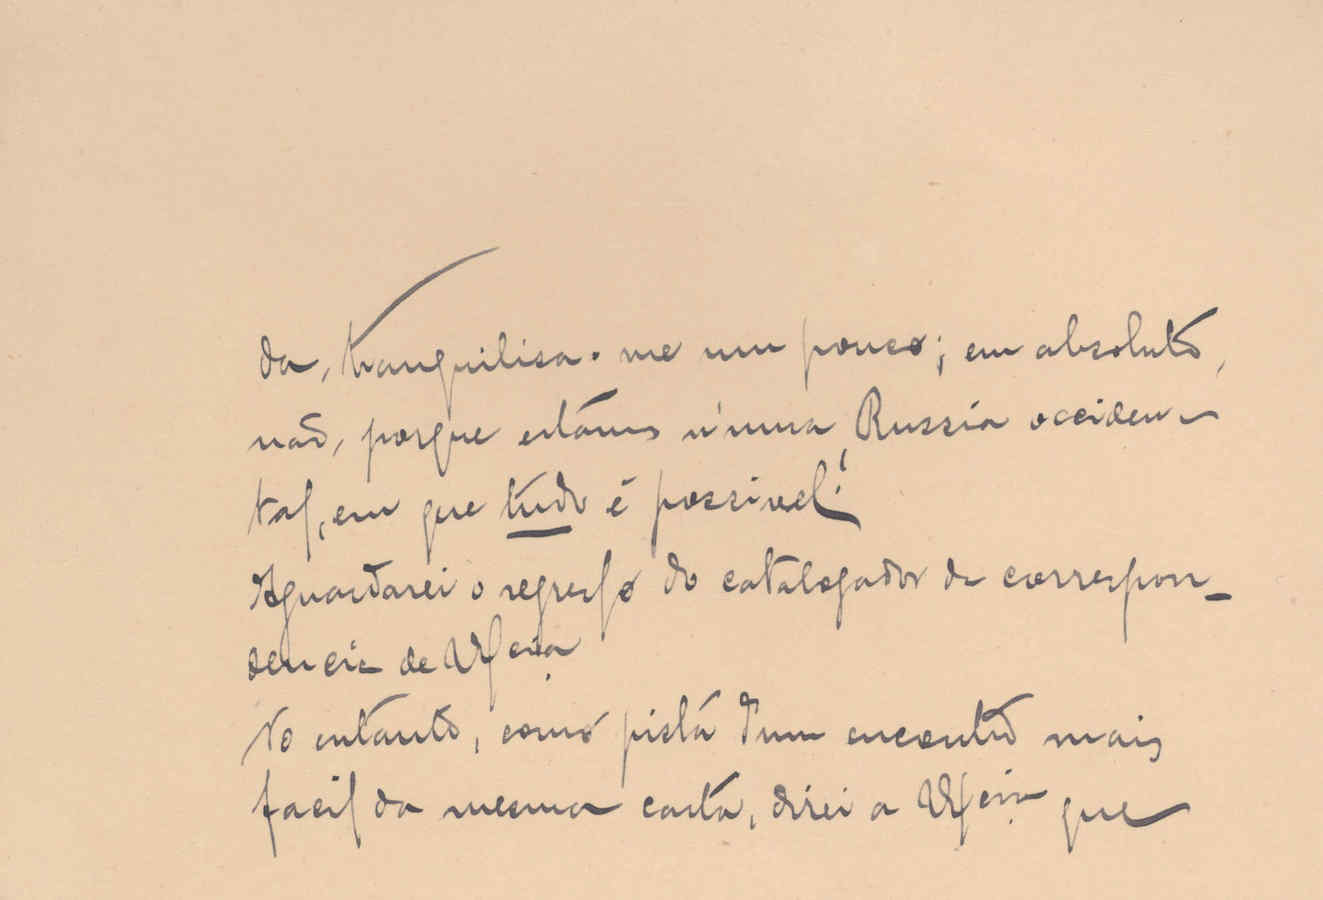 da, tranquilisa-me um pouco; em absoluto,
não, porque estamos n'uma Russia occiden-
tal, em que tudo é possivel!
Aguardarei o regresso do catalogador de correspon-
dencia de V. Exia
No entanto, como pista d'um encontro mais
facil da mesma carta, direi a V. Exia que